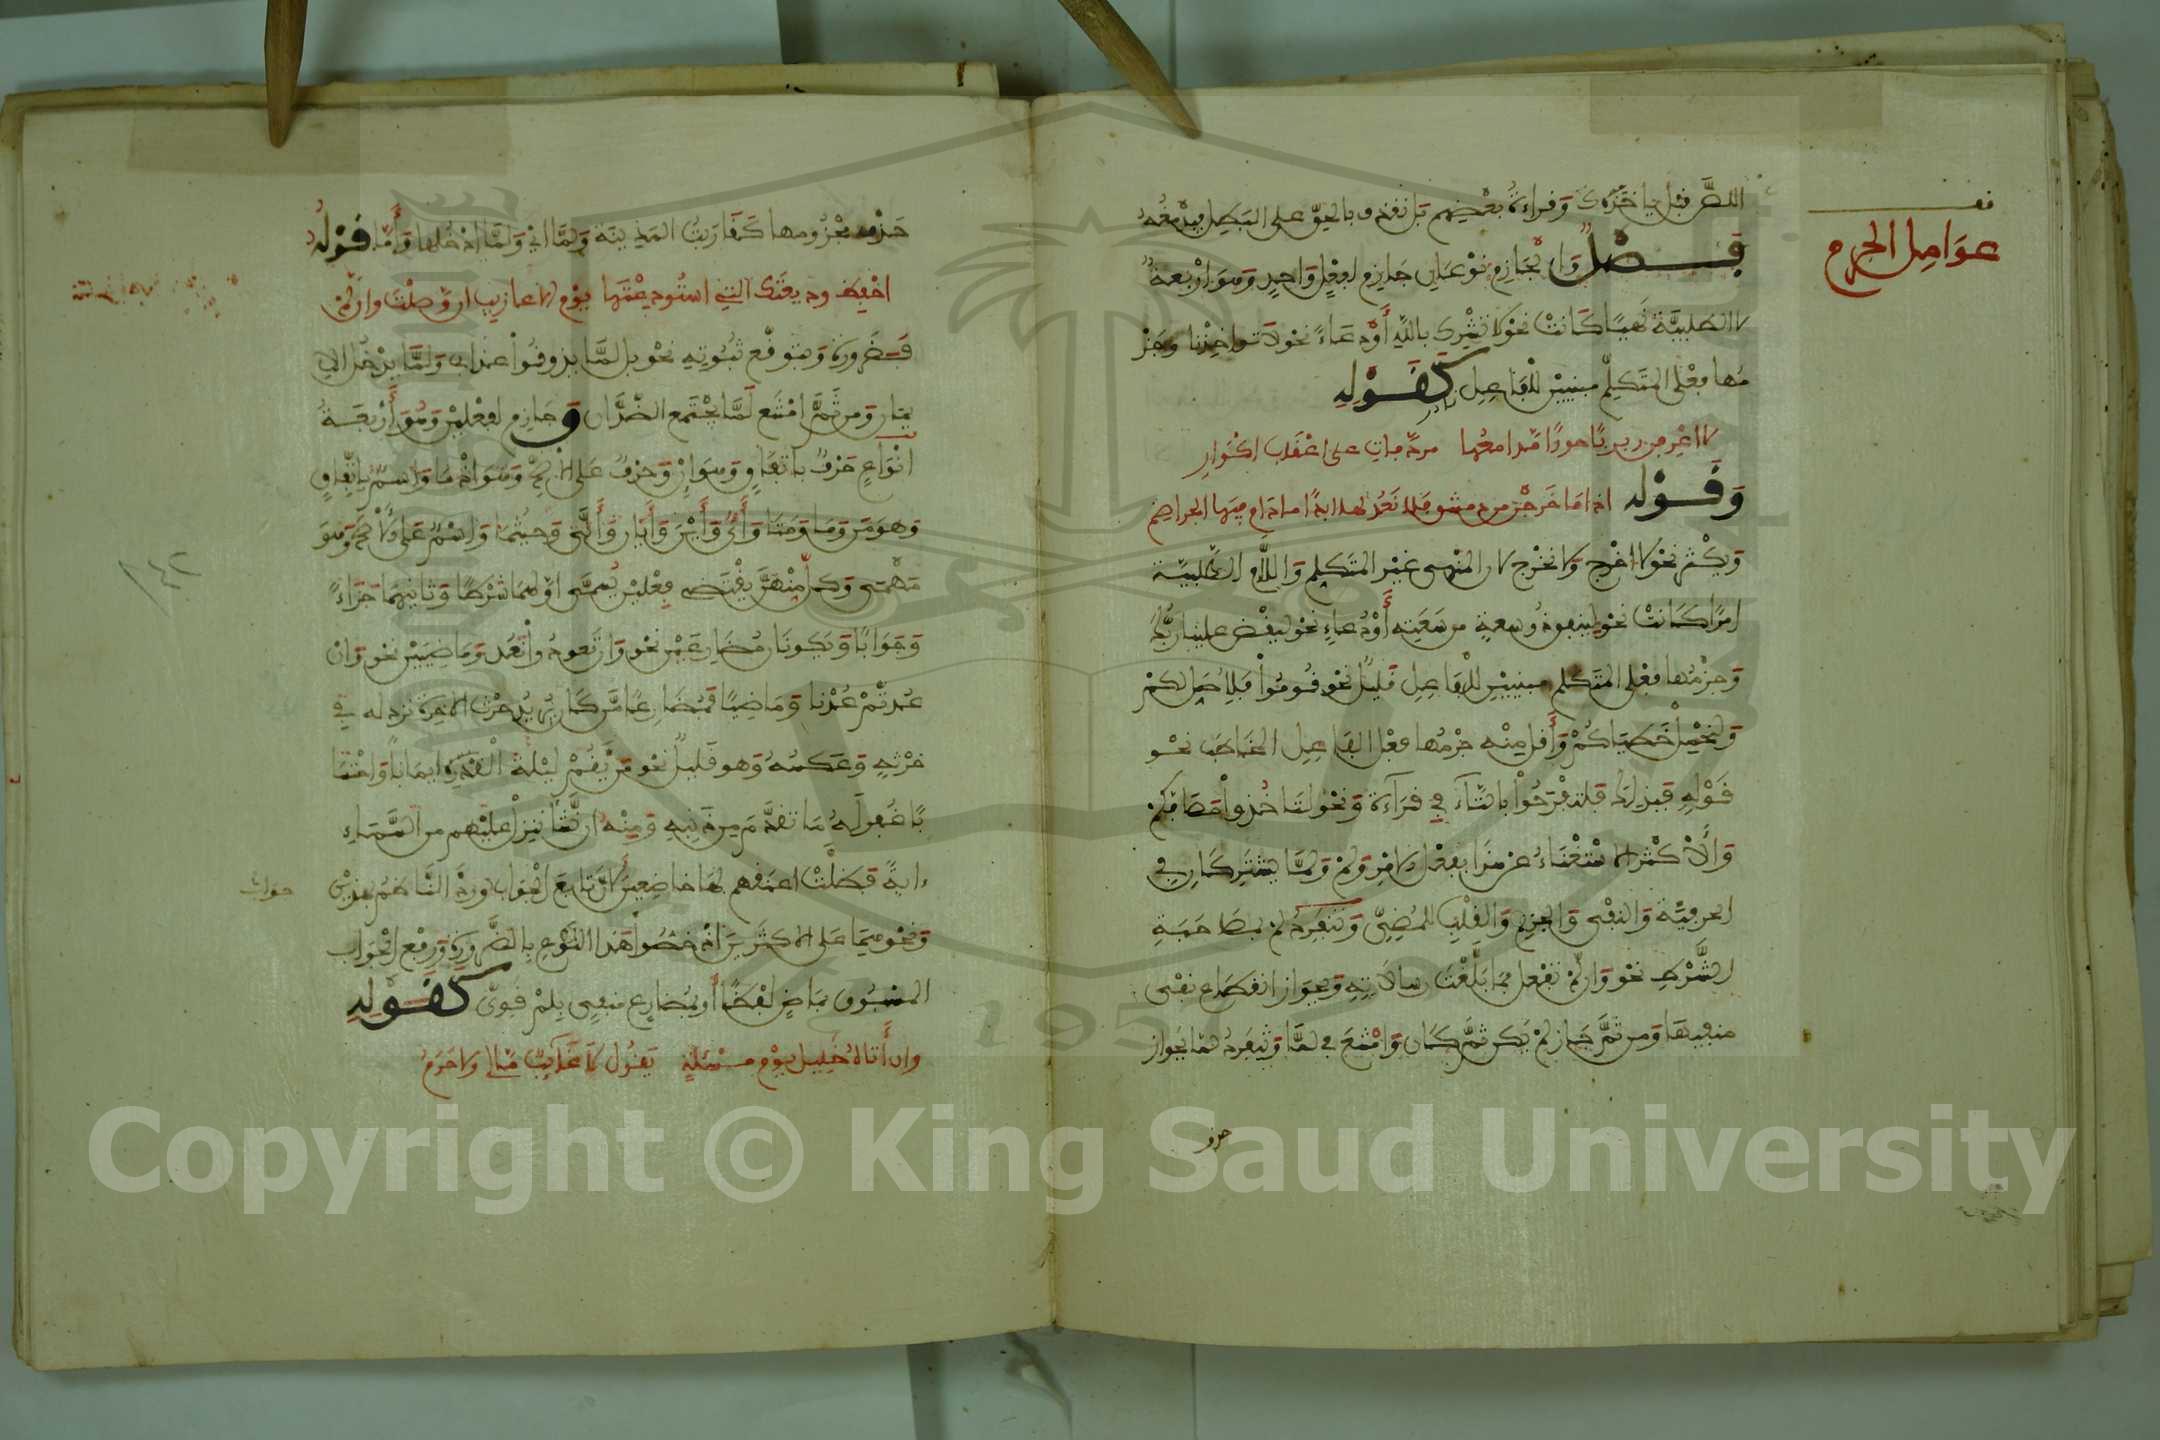 عوامل الجزم
اللص قبل ياخذك وقراءة بعضهم بل نقذف بالحق على الباطل فيدمغه
فصل والجازم نوعان جازم لفعل واحد وهو اربعة
لا الطلبية نهيا كانت نحو لا تشرك بالله أو دعاء نحو لا تواخذنا وجز
مها فعلى المتكلم مبنيين للفاعل نادر كقوله
لا اعرفن ربربا حورا مدامعها مردفات على اعقاب اكوار
وقوله اذا ما خرجنا من دمشق فلا نعد لها ابدا ما دام فيها الجراضم
ويكثر نحو لا اخرج ولا نخرج لان المنهى غير المتكلم واللام الطلبية
امرا كانت نحو لينفق ذو سعة من سعته أو دعاء نحو ليقض علينا ربك
وجزمها فعلى المتكلم مبنيين للفاعل قليل نحو قوموا فلاصل لكم
ولنحمل خطاياكم وأقل منه جزمها فعل الفاعل المخاطب نحو
قوله فبذلك فلتفرحوا بالتاء في قراءة ونحو لتاخذوا مصافكم
والأكثر الاستغناء عن هذا بفعل الامر ولم ولما يشتركان في
الحرفية والنفى والجزم والقلب للمضى وتنفرد لم بمصاحبة
الشرط نحو وان لم تفعل فما بلغت رسالاته وبجواز انقطاع نفى
منفيها ومن ثم جاز لم يكن ثم كان وامتنع في لما وتنفرد لما بجواز
حذف
حذف مجزومها كقاربت المدينة ولما اي ولما ادخلها وأما قوله
احفظ وديعتك التي استودعتها يوم الاعازب ان وصلت وان لم
فضرورة وبتوقع ثبوته نحو بل لما يذوقوا عذاب ولما يدخل الا
يمان ومن ثم امتنع لما يجتمع الضدان وجازم لفعلين وهو أربعة
انواع حرف باتفاق وهو ان وحرف على الاصح وهو اذ ما واسم باتفاق
وهو من وما ومتى وأى وأين وأيان وأنى وحيثما واسم على الاصح وهو
مهمى وكل منهن يقتضى فعلين يسمى اولهما شرطا وثانيهما جزاء
وجوابا ويكونان مضارعين نحو وان تعودوا نعد وماضيين نحو وان
عدتم عدنا وماضيا فمضارعا من كان يريد حرث الاخرة نزد له في
حرثه وعكسه وهو قليل نحو من يقم ليلة القدر ايمانا واحتسا
با غفر له ما تقدم من ذنبه ومنه ان نشا ننزل عليهم من السماء
ءاية فظلت اعناقهم لها خاضعين لان تابع الجواب جواب ورد الناظم بهذين
ونحوهما على الاكثرين اذ خصوا هذا النوع بالضرورة ورفع الجواب
المسبوق بماض لفظا أو بمضارع منفى بلم قوى كقوله
وان أتاه خليل يوم مسئلة يقول لا غائب مالي ولا حرم